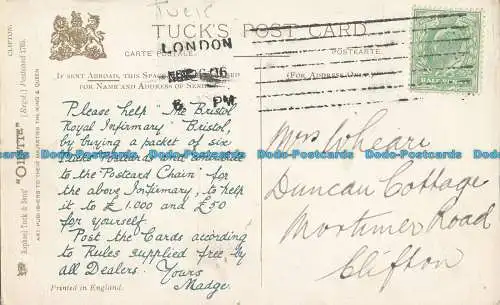 Tuck
TUCK'S POST CARD.
CARTE POSTALE.
POSTKARTE.
LONDON
06
6 PM
IF SENT ABROAD, THIS SPACE
FOR NAME AND ADDRESS OF
(FOR ADDRESS ONLY.)
HALFPENNY
CLIFTON.
Raphael Tuck & Sons' "OILETTE" [Regd.] Postcard 1785.
ART PUBLISHERS TO THEIR MAJESTIES THE KING & QUEEN
Please help "The Bristol
Royal Infirmary" Bristol,
by buying a packet of six
Tucks Postcards and
to the Postcard Chain" for
the above Infirmary, to help
it to £1,000 and £50
for yourself.
Post the Cards according
to Rules supplied free by
all Dealers. Yours
Madge.
Printed in England.
Mrs Wheare
Duncan Cottage
Mortimer Road
Clifton
www.bode-books.com